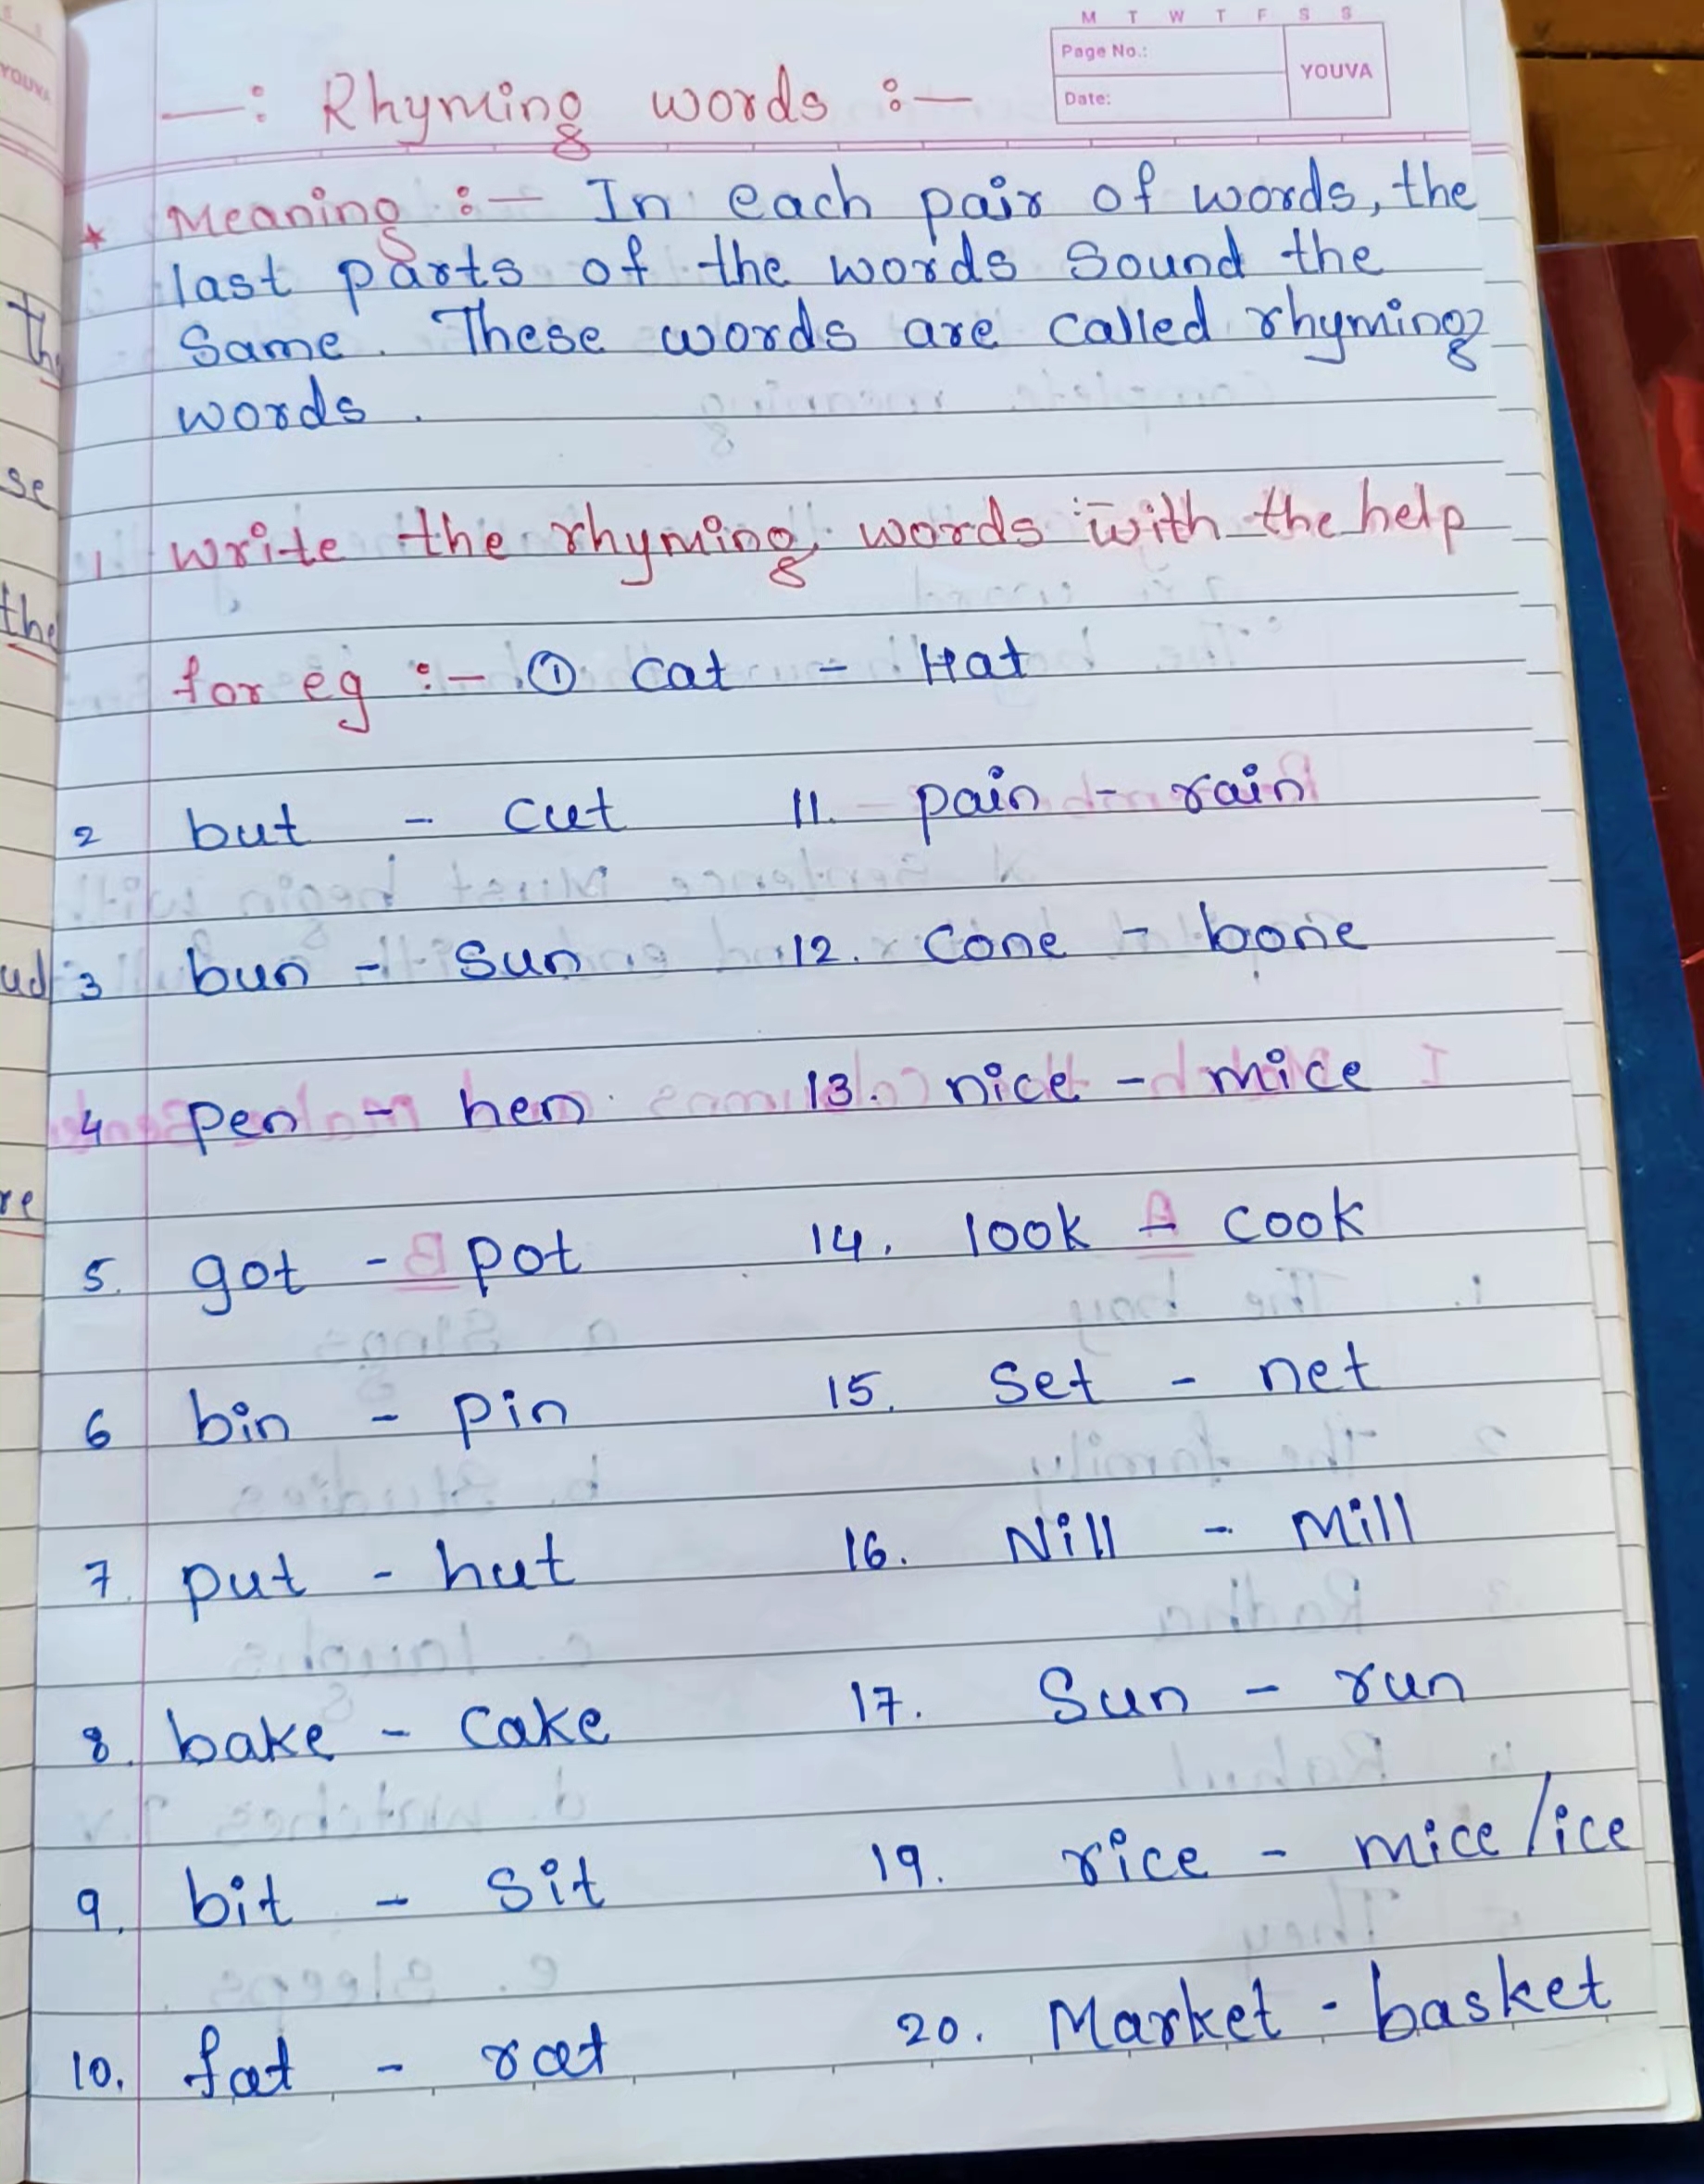 M T W T F S S
Page No.:
YOUVA
Date:
—: Rhyming words :—
* Meaning :— In each pair of words, the
last parts of the words sound the
Same. These words are called rhyming
words.
1 write the rhyming words with the help
for eg :— ① cat - Hat
2 but - cut 11. pain - rain
3 bun - Sun 12. cone - bone
4 pen - hen 13. nice - mice
5. got - pot 14. look - cook
6 bin - pin 15. Set - net
7. put - hut 16. Nill - Mill
8. bake - cake 17. Sun - run
9. bit - sit 19. rice - mice/ice
10. fat - rat 20. Market - basket